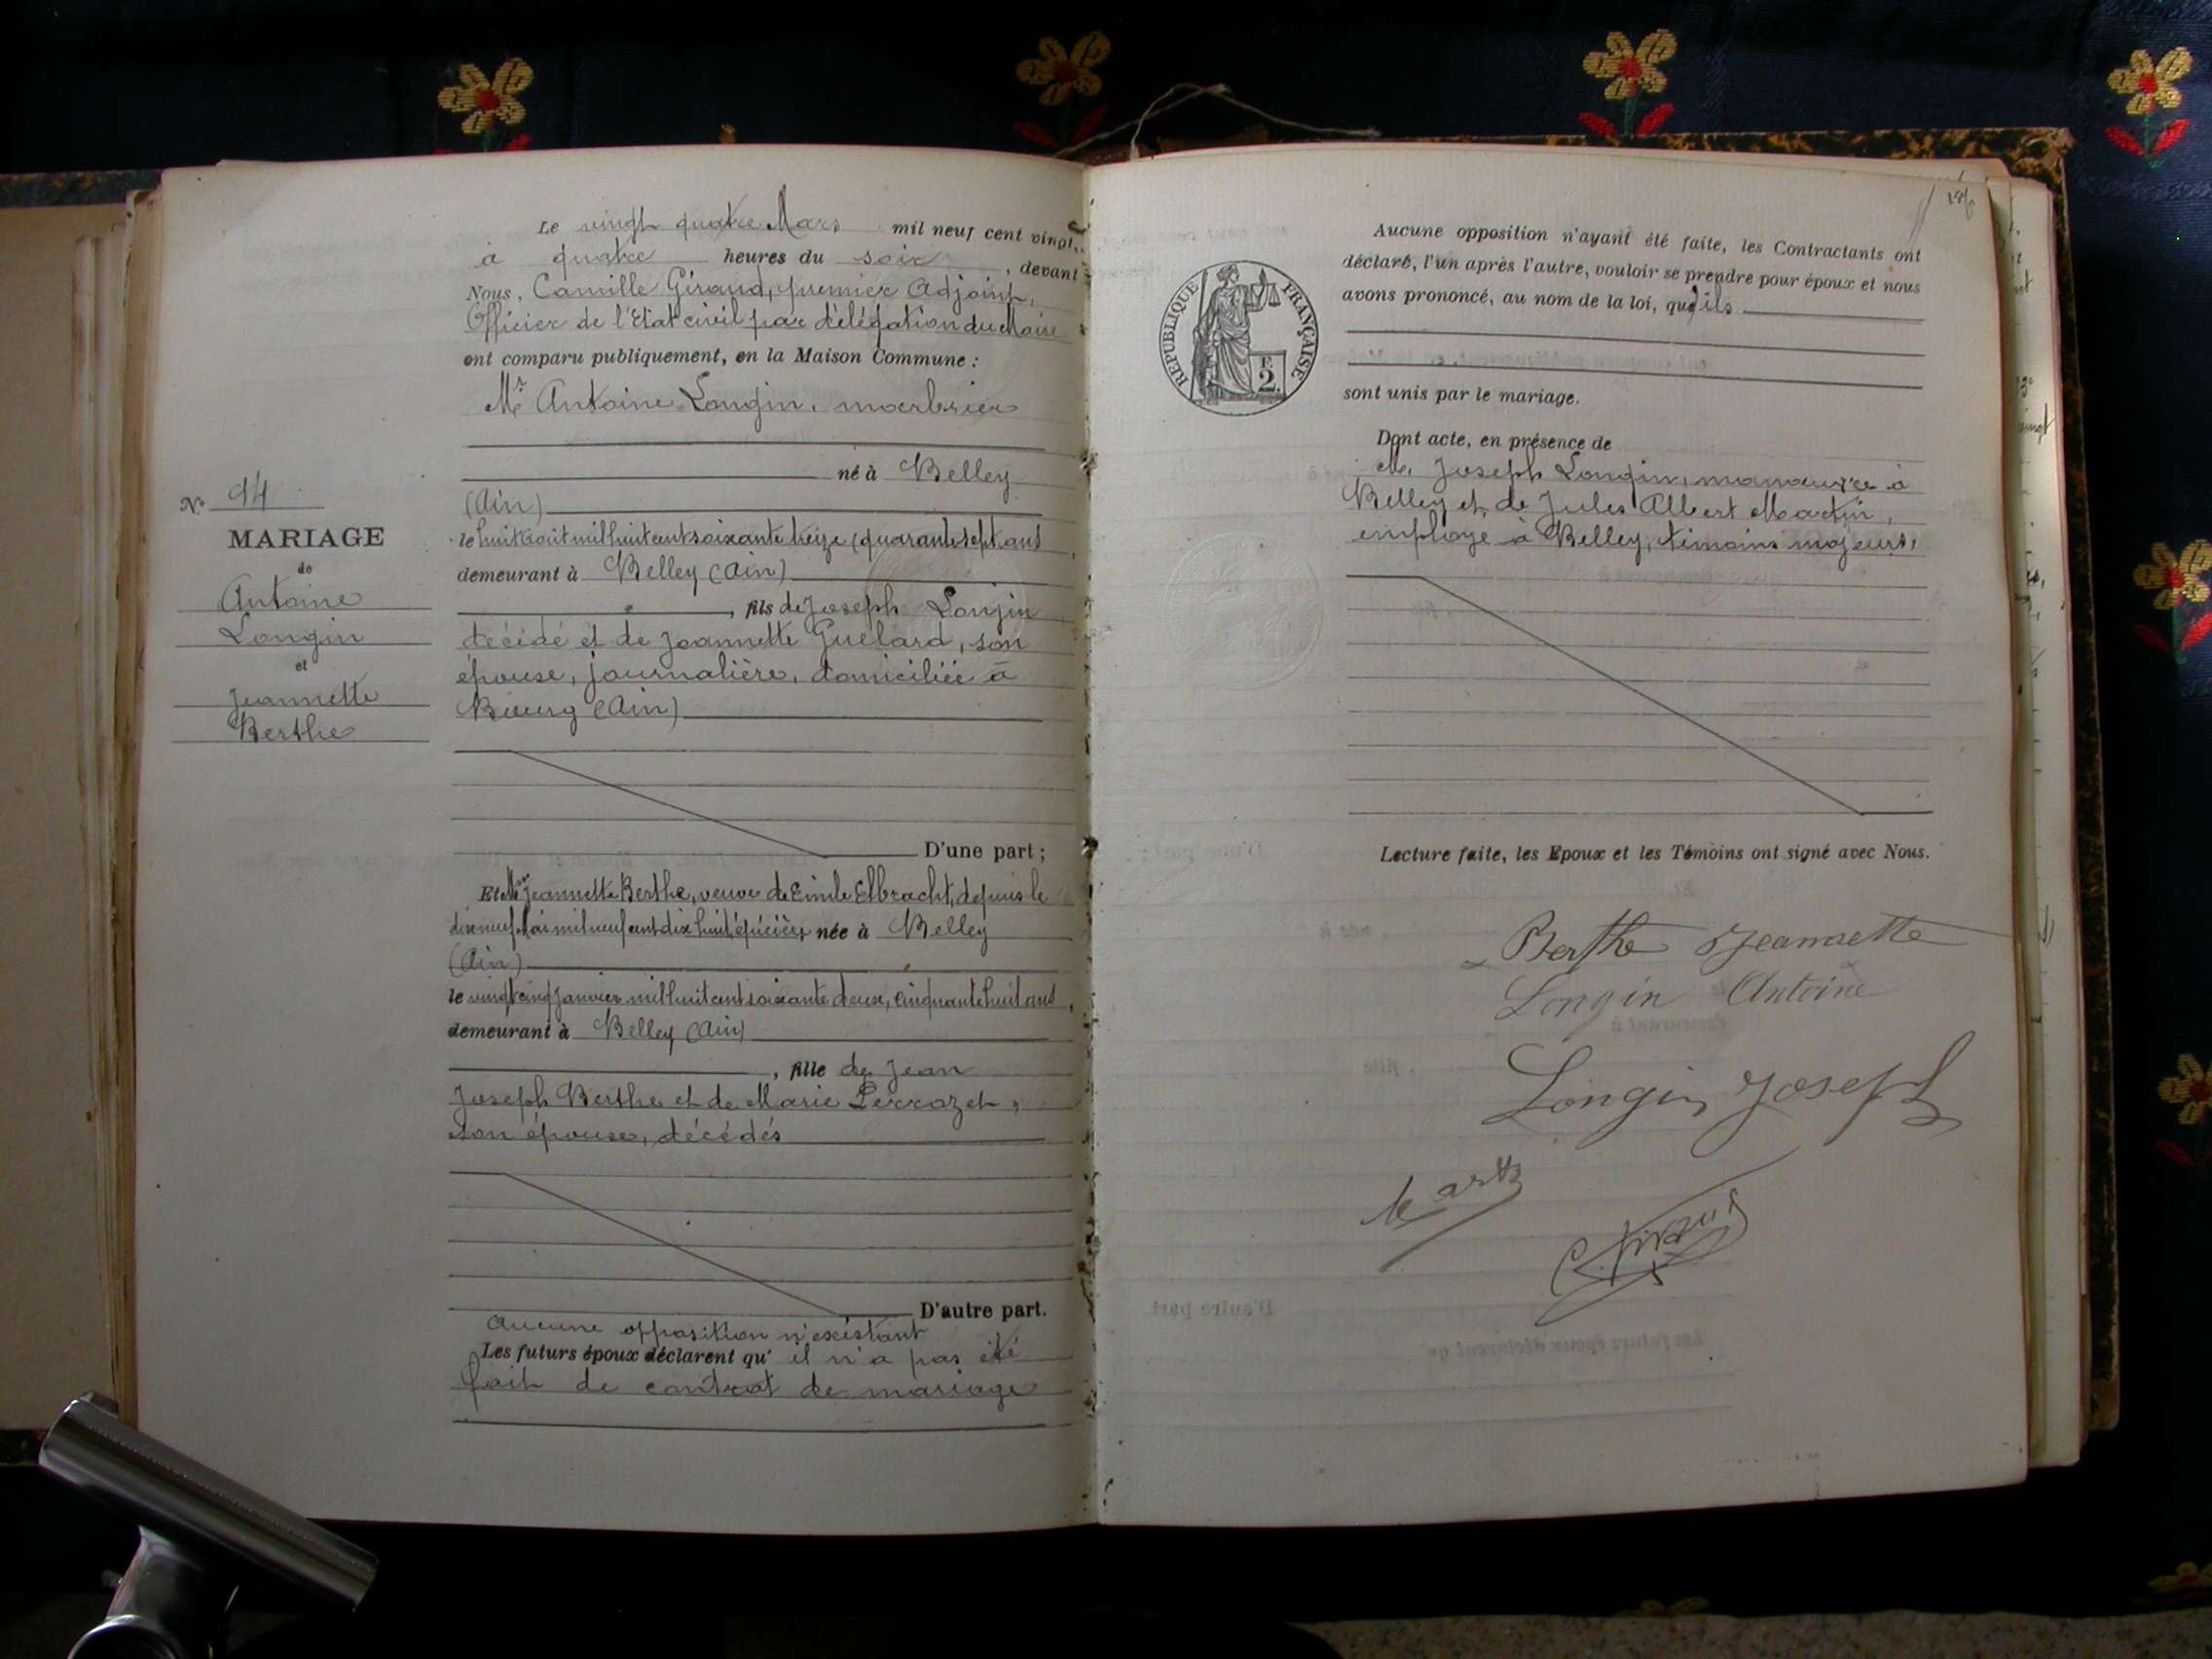 Le vingt quatre Mars mil neuf cent vingt,
à quatre heures du soir, devant
Nous, Camille Giraud, premier Adjoint,
Officier de l'Etat civil par délégation du Maire
ont comparu publiquement, en la Maison Commune :
Mr Antoine Longin, marbrier
né à Belley
(Ain)
le huit août mil huit cent soixante treize, quarante sept ans,
demeurant à Belley (Ain)
, fils de Joseph Longin
décédé et de Joannette Guélard, son
épouse, journalière, domiciliée à
Bourg (Ain)
D'une part ;
N° 14
MARIAGE
de
Antoine
Longin
et
Jeannette
Berthe
Et Mme Jeannette Berthe, veuve de Emile Elbracht, depuis le
dix neuf Mai mil neuf cent dix huit, épicière, née à Belley
(Ain)
le vingt cinq janvier mil huit cent soixante deux, cinquante huit ans,
demeurant à Belley (Ain)
, fille de Jean
Joseph Berthe et de Marie Perrozet,
son épouse, décédés
D'autre part.
aucune opposition n'existant
Les futurs époux déclarent qu' il n'a pas été
fait de contrat de mariage
Aucune opposition n'ayant été faite, les Contractants ont
déclaré, l'un après l'autre, vouloir se prendre pour époux et nous
avons prononcé, au nom de la loi, qu'ils
sont unis par le mariage.
REPUBLIQUE FRANÇAISE
F.
2
Dont acte, en présence de
M. Joseph Longin, manœuvre à
Belley et de Jules Albert Martin,
employé à Belley, témoins majeurs,
Lecture faite, les Epoux et les Témoins ont signé avec Nous.
Berthe Jeannette
Longin Antoine
Longin Joseph
C. Giraud